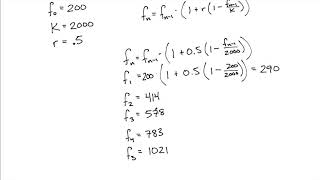 f₀ = 200
K = 2000
r = .5
fₙ = fₙ₋₁ · (1 + r(1 - fₙ₋₁/K))
fₙ = fₙ₋₁ · (1 + 0.5(1 - fₙ₋₁/2000))
f₁ = 200 · (1 + 0.5(1 - 200/2000)) = 290
f₂ = 414
f₃ = 578
f₄ = 783
f₅ = 1021